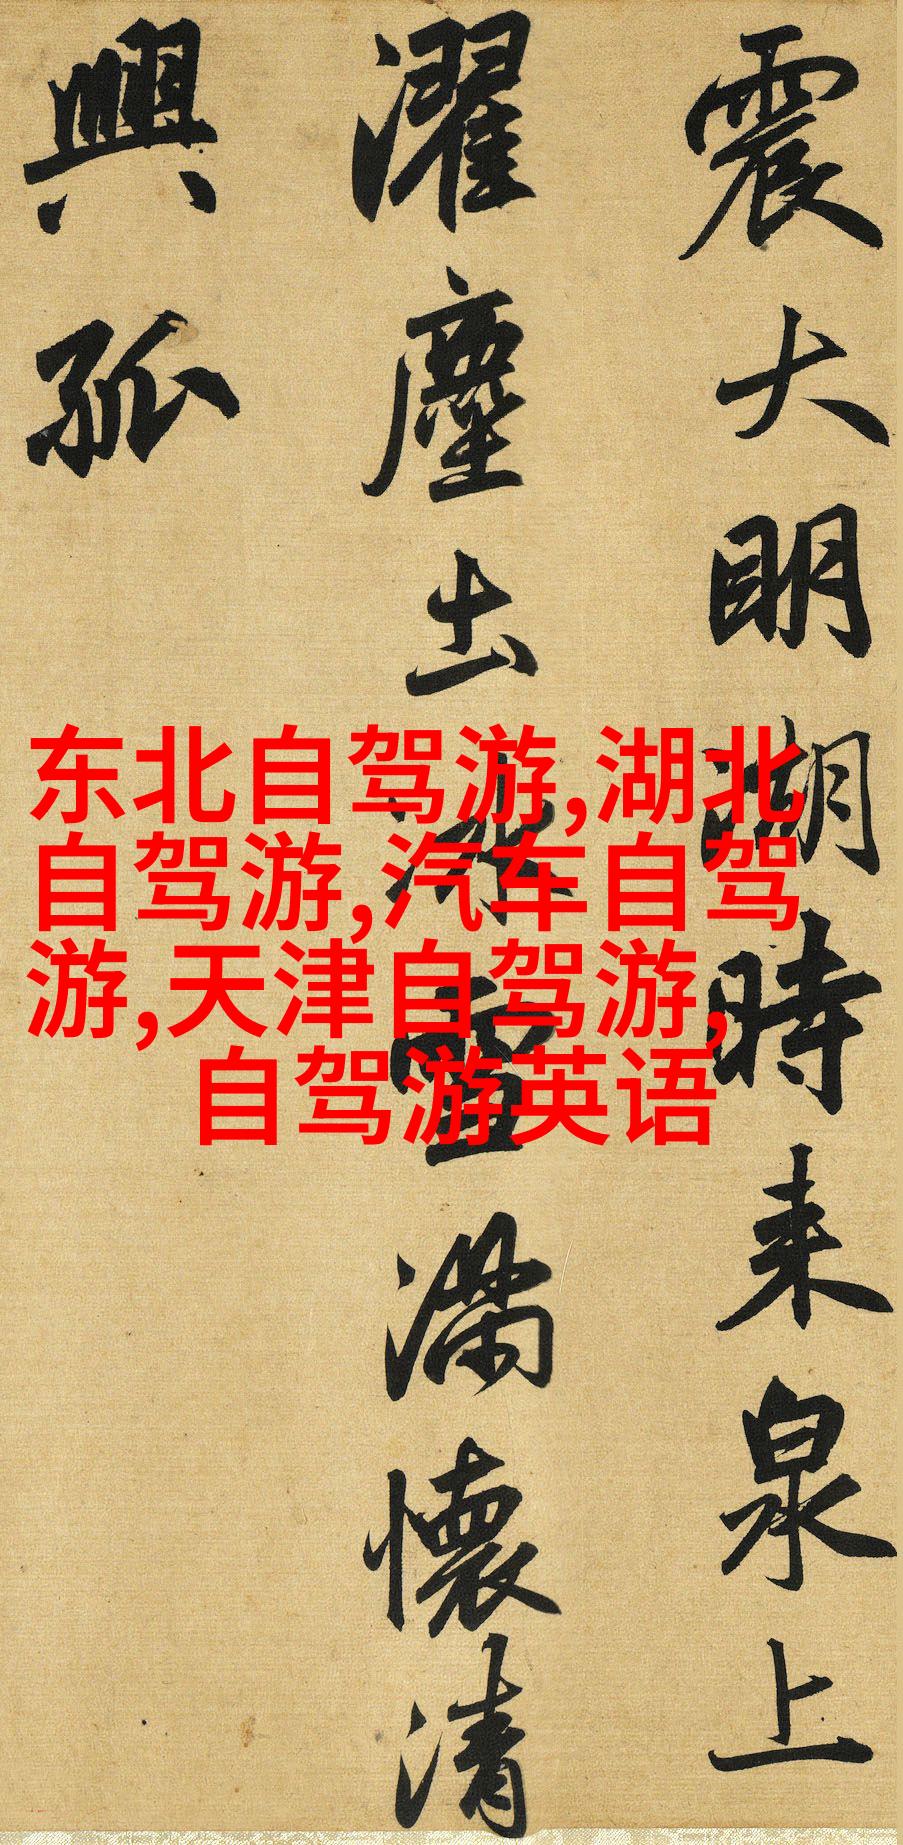 震大明湖時来泉上
濯塵出冰雪滿懷清
興孤
东北自驾游,湖北
自驾游,汽车自驾
游,天津自驾游,
自驾游英语